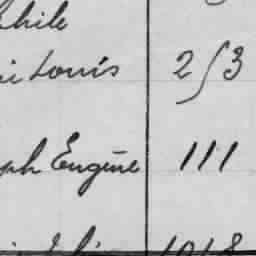 phile
ri Louis 253
eph Eugène 111
1018